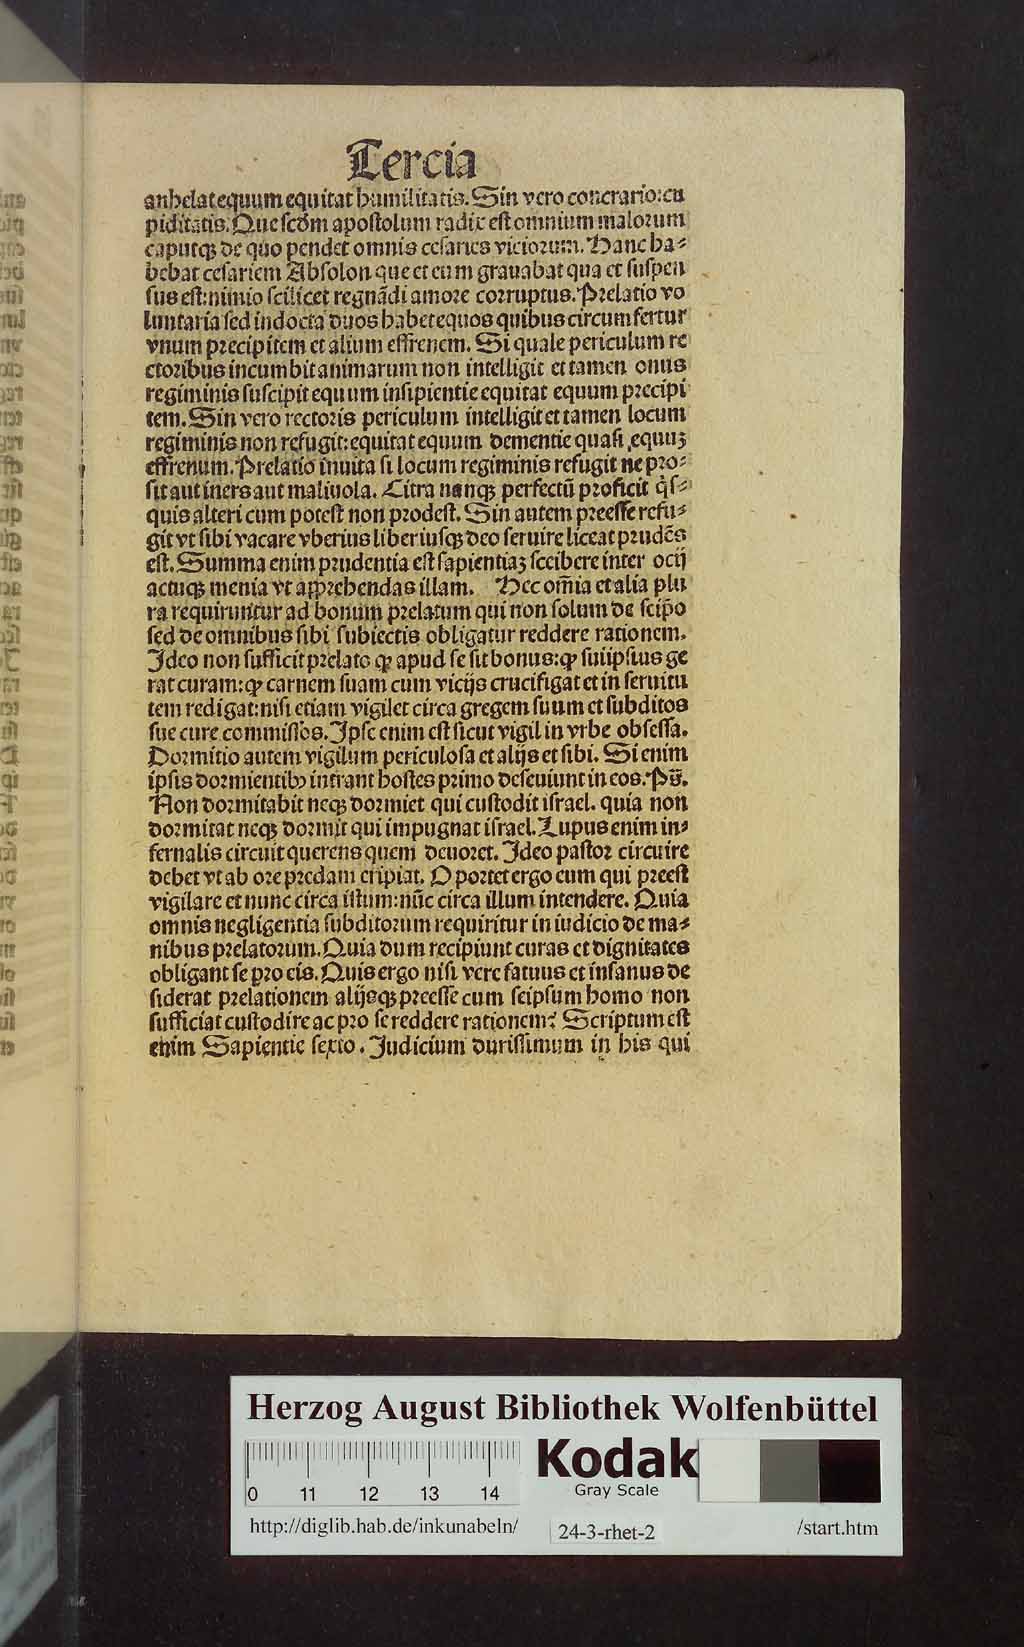 Tercia
anhelat equum equitat humilitatis. Sin vero contrario: cu
piditatis. Que scd̄m apostolum radix est omnium malorum
caputqꝫ de quo pendet omnis cesaries viciorum. Hanc ha⸗
bebat cesariem Absolon que et eum grauabat qua et suspen
sus est: nimio scilicet regnādi amore corruptus. Prelatio vo
luntaria sed indocta duos habet equos quibus circumfertur
vnum precipitem et alium effrenem. Si quale periculum re
ctoribus incumbit animarum non intelligit et tamen onus
regiminis suscipit equum insipientie equitat equum precipi
tem. Sin vero rectoris periculum intelligit et tamen locum
regiminis non refugit: equitat equum dementie quasi equuꝫ
effrenum. Prelatio inuita si locum regiminis refugit ne pro⸗
sit aut iners aut maliuola. Citra nanqꝫ perfectū proficit q̇s⸗
quis alteri cum potest non prodest. Sin autem preesse refu⸗
git vt sibi vacare vberius liberiusqꝫ deo seruire liceat prudēs
est. Summa enim prudentia est sapientiaꝫ scribere inter ocij
actusqꝫ menia vt apprehendas illam. Hec om̄ia et alia plu
ra requiruntur ad bonum prelatum qui non solum de seip̄o
sed de omnibus sibi subiectis obligatur reddere rationem.
Ideo non sufficit prelato ꝙ apud se sit bonus: ꝙ suiipsius ge
rat curam: ꝙ carnem suam cum vicijs crucifigat et in seruitu
tem redigat: nisi etiam vigilet circa gregem suum et subditos
sue cure commissos. Ipse enim est sicut vigil in vrbe obsessa.
Dormitio autem vigilum periculosa et alijs et sibi. Si enim
ipsis dormientibꝰ intrant hostes primo deseuiunt in eos. Ps̄.
Non dormitabit neqꝫ dormiet qui custodit israel. quia non
dormitat neqꝫ dormit qui impugnat israel. Lupus enim in⸗
fernalis circuit querens quem deuoret. Ideo pastor circuire
debet vt ab ore predam eripiat. Oportet ergo eum qui preest
vigilare et nunc circa istum: nūc circa illum intendere. Quia
omnis negligentia subditorum requiritur in iudicio de ma⸗
nibus prelatorum. Quia dum recipiunt curas et dignitates
obligant se pro eis. Quis ergo nisi vere fatuus et insanus de
siderat prelationem alijsqꝫ preesse cum seipsum homo non
sufficiat custodire ac pro se reddere rationem? Scriptum est
enim Sapientie sexto. Judicium durissimum in his qui
Herzog August Bibliothek Wolfenbüttel
Kodak
Gray Scale
0 11 12 13 14
http://diglib.hab.de/inkunabeln/ 24-3-rhet-2 /start.htm